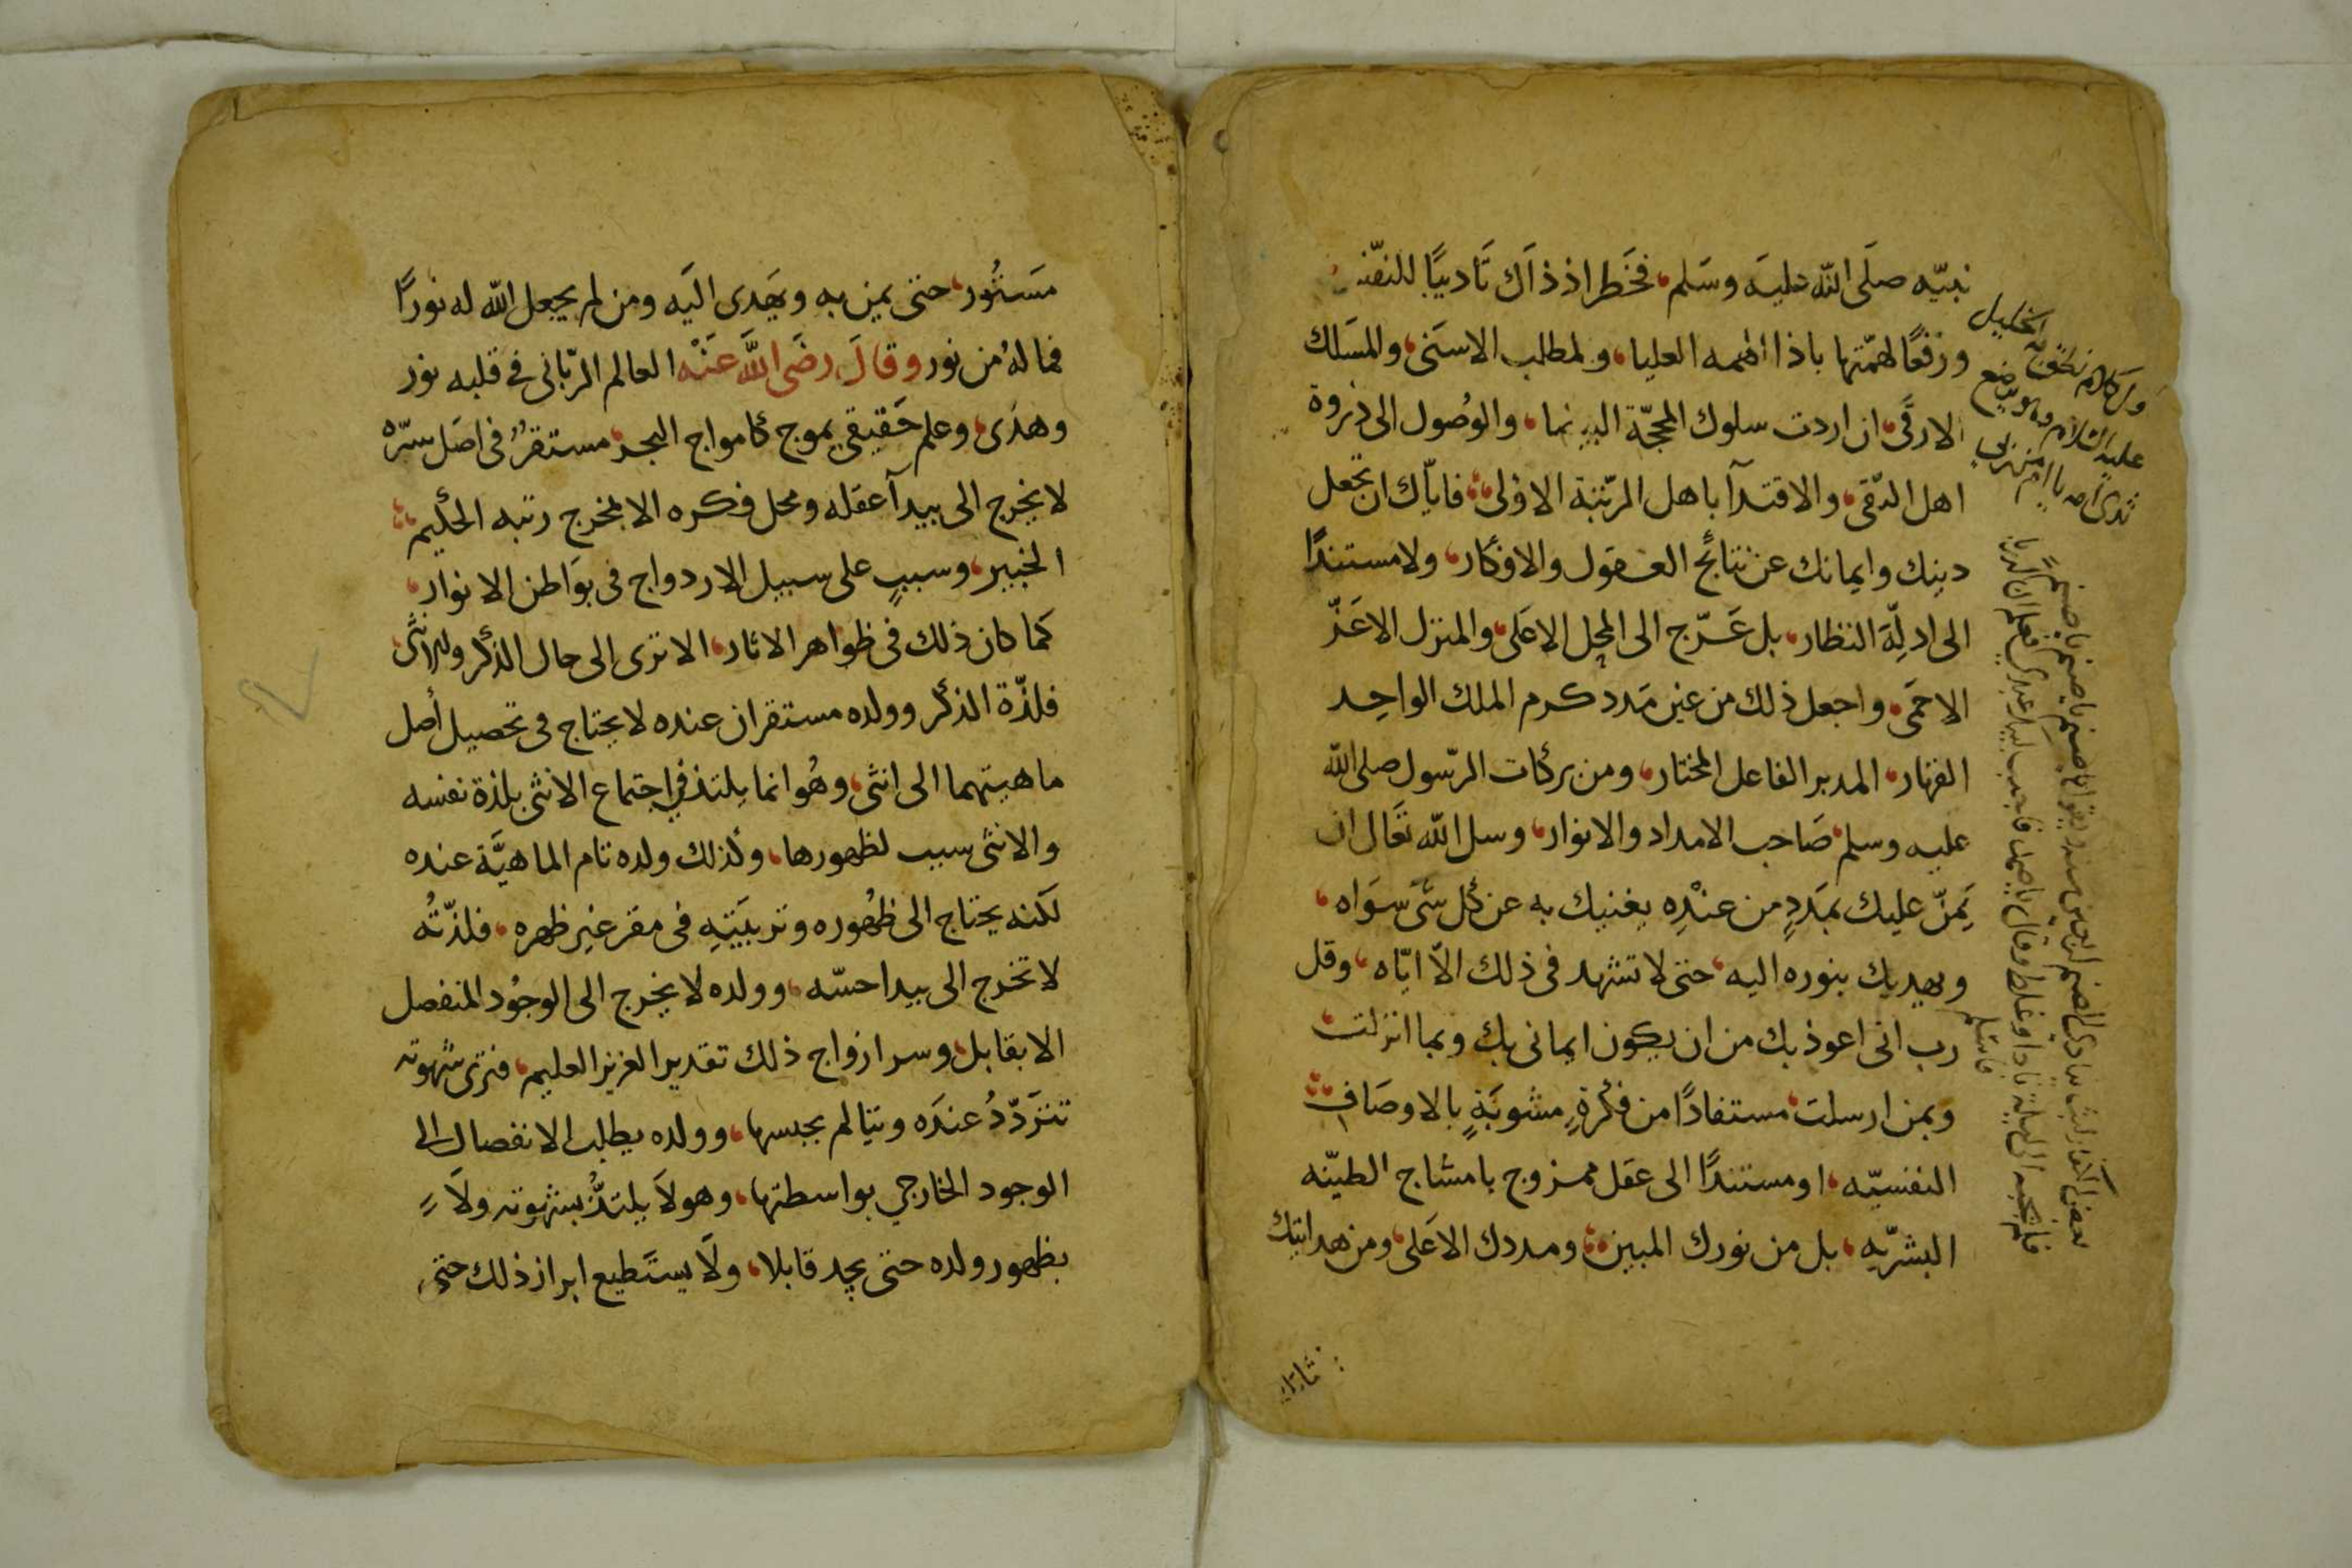 نبيّه صلَى الله عليَه وسَلم، فخَطر اذ ذاَك تَاديبًا للنفّسِ
ورَفعًا لهمّتها باذا الهمه العليا، ولمطلب الاسَنى، والمسَلك
الارقَى، ان اردت سلوك المحجّة البيضا، والوُصول الى ذروة
اهل التّقى، والاقتدآ باهل المرّتبة الاولى، فايّاك ان تجعل
دينك وايمانك عن نتائج العقول والافكار، ولا مستندًا
الى ادلّة النظار، بل عَرّج الى المحِل الاعَلى، والمنزل الاعَزّ
الاحمَى، واجعل ذلك من عَين مَدد كرم الملك الواحِد
القهار، المدبر الفاعل المختار، ومن بركات الرّسول صلى الله
عليه وسلم صَاحب الامداد والانوار، وسل الله تعَالى ان
يَمنّ عليك بمَددٍ من عنْدِه يغنيك به عن كل شَى سوَاه،
ويهديك بنوره اليه، حتى لا تشهد فى ذلك الّا ايّاه، وقل
رب انى اعوذ بك من ان يكون ايمانى بك وبما انزلت،
وبمن ارسلت، مستفادًا من فكرةٍ مشوبَةٍ بالاوصَاف
النفسيّه، او مستندًا الى عقل ممزوج بامشاج الطينّه
البشرّيه، بل من نورك المبين، ومددك الاعَلى، ومن هدايتك
عليه السلام وهو يرضع
مَستُور، حتى يمن به ويهَدى اليَه ومن لم يجعل الله له نورًا
فما لهُ من نور وقالَ رضَى اللّه عَنْه العالم الربّانى فى قلبه نور
وهدَى، وعلم حَقيقى يموج كامواج البحر، مستقرٌ فى اصَل سرّه
لا يخرج الى بيدآ عقله ومحل فكره الا بمخرج رتبه الحكيم
الخبير، وسببٍ على سبيل الازدواج فى بوَاطن الانوار،
كما كان ذلك فى ظواهر الاثار، الا ترى الى حال الذكر والانثَى،
فلذّة الذكر وولده مستقران عنده لا يحتاج فى تحصيل أصل
ماهيتهما الى انثى، وهُو انما يلتذ فى اجتماع الانثى بلذة نفسه
والانثى سبب لظهورها، وكذلك ولده تام الماهيَّة عنده
لكنه يحتاج الى ظهُوره وتربيَتِهِ فى مقر غير ظهره، فلذّتُه
لا تخرج الى بيدا حسّه، وولده لا يخرج الى الوجُود المنفصل
الا بقابل، وسر ازواج ذلك تقدير العزيز العليم، فترى شهوته
تتَردّدُ عندَه ويتالم بحبسها، وولده يطلب الانفصال الى
الوجود الخارجي بواسطتها، وهو لاَ يلتذُّ بشهوته ولاَ
بظهور ولده حتى يجد قابلا، ولَا يستَطيع ابراز ذلك حتى